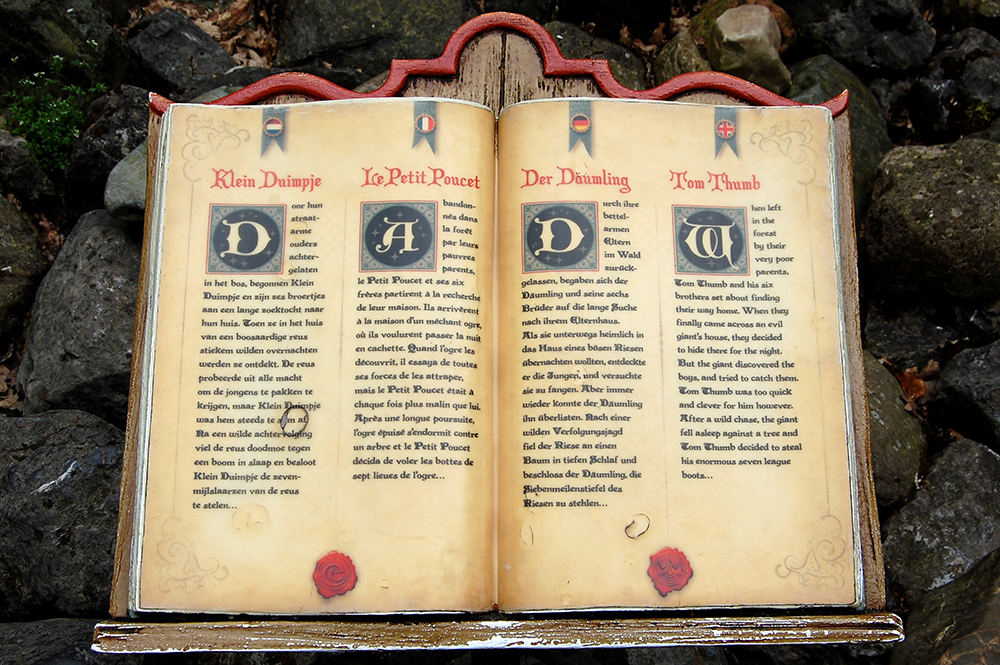 Klein Duimpje
Door hun
straat-
arme
ouders
achter-
gelaten
in het bos, begonnen Klein
Duimpje en zijn zes broertjes
aan een lange zoektocht naar
hun huis. Toen ze in het huis
van een boosaardige reus
stiekem wilden overnachten
werden ze ontdekt. De reus
probeerde uit alle macht
om de jongens te pakken te
krijgen, maar Klein Duimpje
was hem steeds te slim af.
Na een wilde achtervolging
viel de reus doodmoe tegen
een boom in slaap en besloot
Klein Duimpje de zeven-
mijlslaarzen van de reus
te stelen...
Le Petit Poucet
Abandon-
nés dans
la forêt
par leurs
pauvres
parents,
le Petit Poucet et ses six
frères partirent à la recherche
de leur maison. Ils arrivèrent
à la maison d'un méchant ogre,
où ils voulurent passer la nuit
en cachette. Quand l'ogre les
découvrit, il essaya de toutes
ses forces de les attraper,
mais le Petit Poucet était à
chaque fois plus malin que lui.
Après une longue poursuite,
l'ogre épuisé s'endormit contre
un arbre et le Petit Poucet
décida de voler les bottes de
sept lieues de l'ogre...
Der Däumling
Durch ihre
bettel-
armen
Eltern
im Wald
zurück-
gelassen, begaben sich der
Däumling und seine sechs
Brüder auf die lange Suche
nach ihrem Elternhaus.
Als sie unterwegs heimlich in
das Haus eines bösen Riesen
übernachten wollten, entdeckte
er die Jungen, und versuchte
sie zu fangen. Aber immer
wieder konnte der Däumling
ihn überlisten. Nach einer
wilden Verfolgungsjagd
fiel der Riese an einen
Baum in tiefen Schlaf und
beschloss der Däumling, die
Siebenmeilenstiefel des
Riesen zu stehlen...
Tom Thumb
When left
in the
forest
by their
very poor
parents,
Tom Thumb and his six
brothers set about finding
their way home. When they
finally came across an evil
giant's house, they decided
to hide there for the night.
But the giant discovered the
boys, and tried to catch them.
Tom Thumb was too quick
and clever for him however.
After a wild chase, the giant
fell asleep against a tree and
Tom Thumb decided to steal
his enormous seven league
boots...